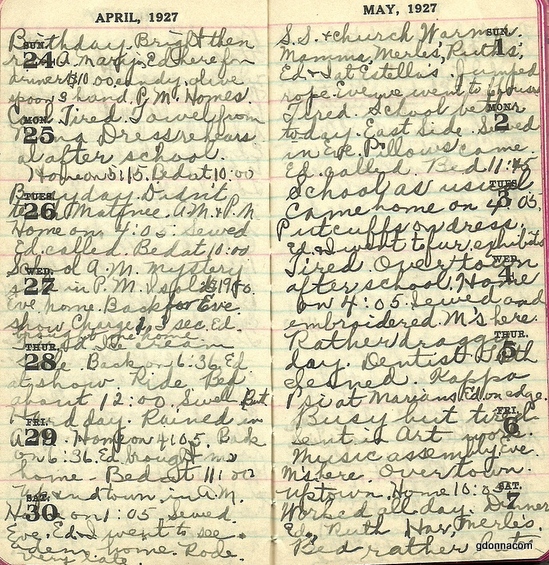 APRIL, 1927
Birthday. Bright then
SUN.
24
A.M. Marj, Ed here for
dinner $10.00 candy, olive
spoon 3 hand. P.M. Homes.
Tired. Towel from
MON.
25
Dress rehears
al after school.
Home on 5:15. Bed at 10:00
Busy day. Didn't
TUES.
26
Matinee A.M. & P.M.
Home on 4:05. Sewed
Ed. called. Bed at 10:00
School A.M. mystery
WED.
27
in P.M. I sold
Eve. home. Back for Eve.
show. Ed.
ice cream
THUR.
28
Back on 6:36. Ed
at show. Ride. Bed
about 12:00. Swell. But
Hard day. Rained in
FRI.
29
Home on 4:05. Back
on 6:36. Ed brought me
home. Bed at 11:00
town in A.M.
SAT.
30
on 1:05. Sewed.
Eve. Ed & I went to see
home. Rode.
very late.
MAY, 1927
S.S. & church. Warm.
SUN.
1
Mamma, Merle's, Ruth's,
Ed & I at Estella's. Jumped
rope. Eve. we went to
Tired. School
MON.
2
today. East Side. Sewed
in Eve. Pillows came
Ed. called. Bed 11:45
School as usual
TUES.
3
Came home on 4:05.
Put cuffs on dress.
Ed & I went to fur exhibits
Tired. Over town
WED.
4
after school. Home
on 4:05. Sewed and
embroidered. M's here.
Rather dragg
THUR.
5
day. Dentist. Teeth
cleaned. Kappa
Psi at Marians. Ed on edge.
Busy but tired
FRI.
6
sent in Art work
Music assembly. Eve.
M's here. Over town.
Uptown. Home 10:
SAT.
7
Worked all day. Dinner
Ed, Ruth Har, Merle's.
Bed rather late
gdonnacom